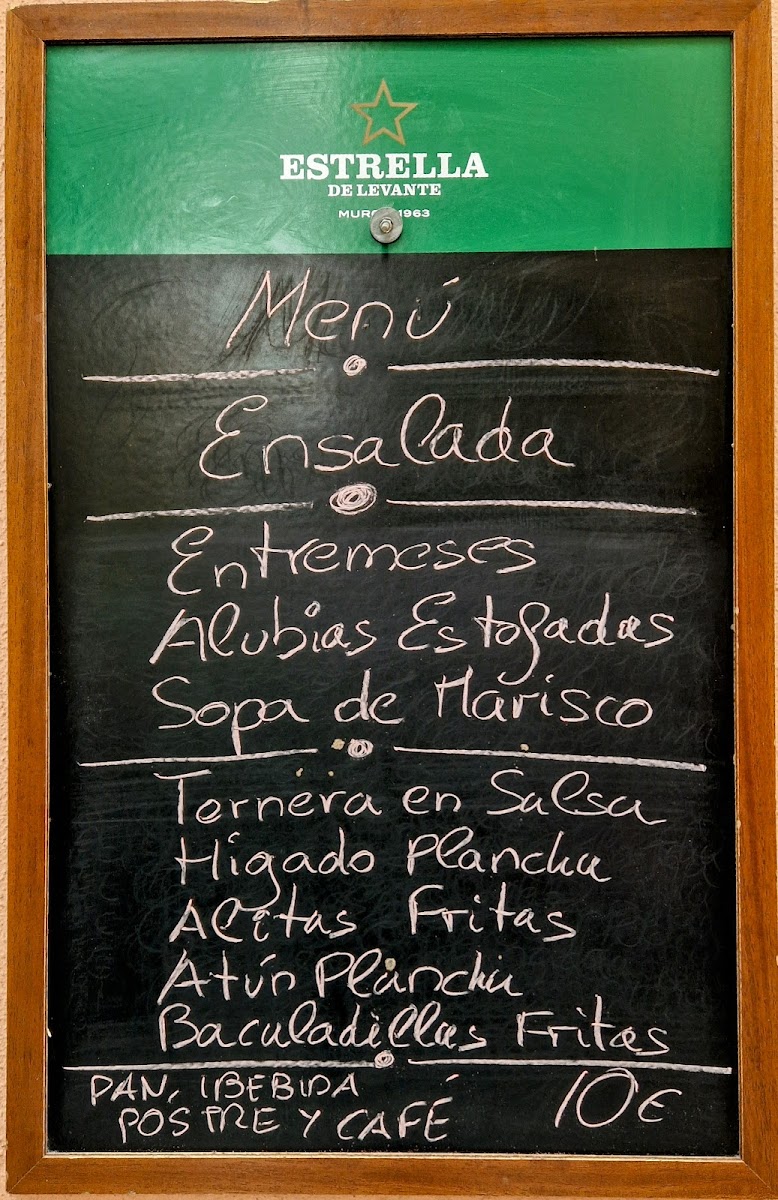 ESTRELLA
DE LEVANTE
1963
Menú
Ensalada
Entremeses
Alubias Estofadas
Sopa de Marisco
Ternera en Salsa
Higado Plancha
Alitas Fritas
Atún Plancha
Baculadillas Fritas
PAN, 1 BEBIDA
POSTRE Y CAFÉ
10€